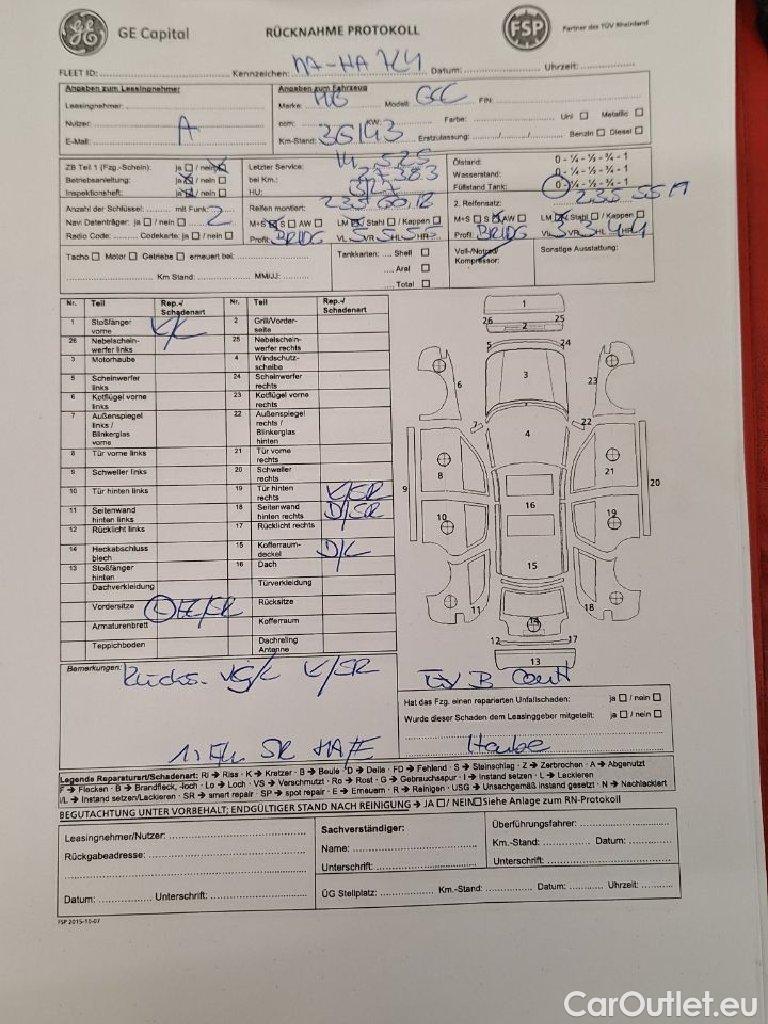 GE Capital RÜCKNAHME PROTOKOLL FSP Partner des TÜV Rheinland
FLEET ID: Kennzeichen: Datum: Uhrzeit:
Angaben zum Leasingnehmer Angaben zum Fahrzeug
Leasingnehmer: Marke: MB Modell: GLC FIN:
Nutzer: A ccm: KW: Farbe: Uni Metallic
E-Mail: Km-Stand: 36143 Erstzulassung: Benzin Diesel
ZB Teil 1 (Fzg.-Schein): ja / nein Letzter Service: Ölstand: 0 - ¼ - ½ - ¾ - 1
Betriebsanleitung: ja / nein bei Km.: 27383 Wasserstand: 0 - ¼ - ½ - ¾ - 1
Inspektionsheft: ja / nein HU: Füllstand Tank: 0 - ¼ - ½ - ¾ - 1
Anzahl der Schlüssel: mit Funk: 2 Reifen montiert: 2. Reifensatz:
Navi Datenträger: ja / nein M+S S AW LM Stahl / Kappen M+S S AW LM Stahl / Kappen
Radio Code: Codekarte: ja / nein Profil: BRIDG VL 5 VR 5 HL 5 HR 5 Profil: BRIDG VL 3 VR 3 HL 4 HR 4
Tacho Motor Getriebe erneuert bei: Tankkarten: Shell Voll-/Notrad/ Sonstige Ausstattung:
Aral Kompressor:
Km Stand: MM/JJ: Total
Nr. Teil Rep.-/ Schadenart Nr. Teil Rep.-/ Schadenart
1 Stoßfänger vorne K/L 2 Grill/Vorderseite
26 Nebelscheinwerfer links 25 Nebelscheinwerfer rechts
3 Motorhaube 4 Windschutzscheibe
5 Scheinwerfer links 24 Scheinwerfer rechts
6 Kotflügel vorne links 23 Kotflügel vorne rechts
7 Außenspiegel links / Blinkerglas vorne 22 Außenspiegel rechts / Blinkerglas hinten
8 Tür vorne links 21 Tür vorne rechts
9 Schweller links 20 Schweller rechts
10 Tür hinten links 19 Tür hinten rechts K/SR
11 Seitenwand hinten links 18 Seitenwand hinten rechts D/SR
12 Rücklicht links 17 Rücklicht rechts
14 Heckabschlussblech 15 Kofferraumdeckel D/L
13 Stoßfänger hinten 16 Dach
Dachverkleidung Türverkleidung
Vordersitze Rücksitze
Armaturenbrett Kofferraum
Teppichboden Dachreling Antenne
1
26 25
2
5 24
3
6 23
7 22
4
8 21
9 20
10 19
16
15
11 18
14
12 17
13
Bemerkungen: K/SR
Hat das Fzg. einen reparierten Unfallschaden: ja / nein
Wurde dieser Schaden dem Leasinggeber mitgeteilt: ja / nein
Haube
Legende Reparaturart/Schadenart: RI → Riss - K → Kratzer - B → Beule - D → Delle - FD → Fehlend - S → Steinschlag - Z → Zerbrochen - A → Abgenutzt
F → Flecken - B → Brandfleck, -loch - Lo → Loch - VS → Verschmutzt - Ro → Rost - G → Gebrauchsspur - I → Instand setzen - L → Lackieren
I/L → Instand setzen/Lackieren - SR → smart repair - SP → spot repair - E → Erneuern - R → Reinigen - USG → Unsachgemäß instand gesetzt - N → Nachlackiert
BEGUTACHTUNG UNTER VORBEHALT; ENDGÜLTIGER STAND NACH REINIGUNG → JA / NEIN Siehe Anlage zum RN-Protokoll
Leasingnehmer/Nutzer: Sachverständiger: Überführungsfahrer:
Rückgabeadresse: Name: Km.-Stand: Datum:
Unterschrift: Unterschrift:
Datum: Unterschrift: ÜG Stellplatz: Km.-Stand: Datum: Uhrzeit:
FSP 2015-10-07
CarOutlet.eu